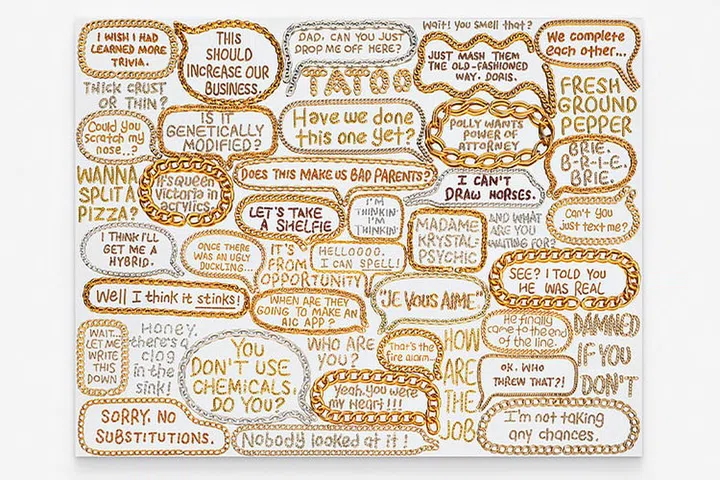 I WISH I HAD
LEARNED MORE
TRIVIA.
THIS
SHOULD
INCREASE OUR
BUSINESS.
DAD, CAN YOU JUST
DROP ME OFF HERE?
Wait! you smell that?
We complete
each other...
TATOO
JUST MASH THEM
THE OLD-FASHIONED
WAY. DORIS.
THICK CRUST
OR THIN?
FRESH
GROUND
PEPPER
Could you
scratch my
nose..?
IS IT
GENETICALLY
MODIFIED?
Have we done
this one yet?
POLLY WANTS
POWER OF
ATTORNEY
BRIE.
B-R-I-E.
BRIE.
WANNA
SPLIT A
PIZZA?
It's Queen
Victoria in
acrylics.
DOES THIS MAKE US BAD PARENTS?
I CAN'T
DRAW HORSES.
LET'S TAKE
A SHELFIE
I'M
THINKIN'
I'M
THINKIN'
MADAME
KRYSTAL-
PSYCHIC
AND WHAT
ARE YOU
WAITING FOR?
Can't you
just text me?
I THINK I'LL
GET ME A
HYBRID.
ONCE THERE
WAS AN UGLY
DUCKLING...
IT'S
FROM
OPPORTUNITY
HELLOOOO.
I CAN SPELL!
SEE? I TOLD YOU
HE WAS REAL
Well I think it stinks!
WHEN ARE THEY
GOING TO MAKE AN
AIC APP?
"JE VOUS AIME"
WAIT...
LET ME
WRITE
THIS
DOWN
Honey,
there's a
clog
in the
sink!
YOU
DON'T USE
CHEMICALS,
DO YOU?
WHO ARE
YOU?
That's the
fire alarm...
HOW
ARE
THE
JOB
He finally
came to the end
of the line.
DAMNED
IF YOU
DON'T
Yeah, you were
my Heart!!!
OK. WHO
THREW THAT?!
SORRY. NO
SUBSTITUTIONS.
Nobody looked at it!
I'm not taking
any chances.